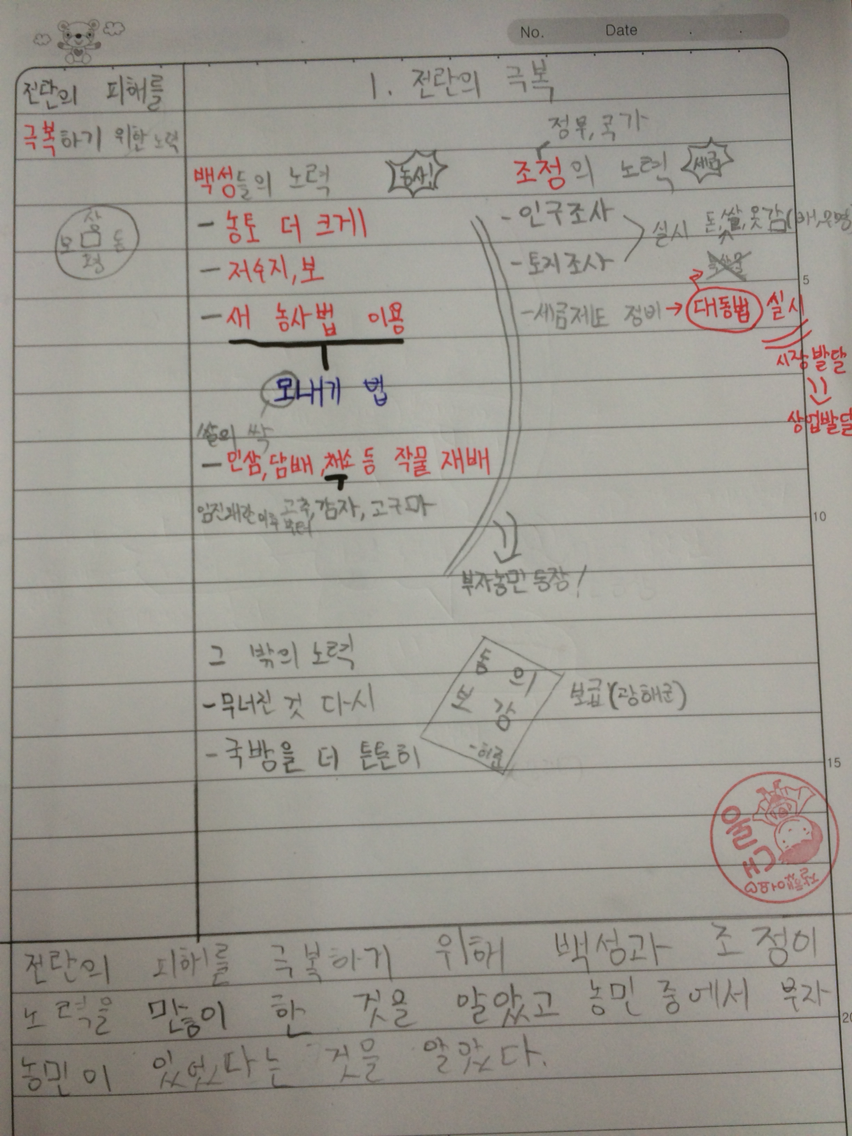 No. Date
전란의 피해를
극복하기 위한 노력
상
모 음 돈
평
1. 전란의 극복
정부, 국가
백성들의 노력 농사!
- 농토 더 크게
- 저수지, 보
- 새 농사법 이용
모내기 법
쌀의 싹
- 인삼, 담배, 채소 등 작물 재배
임진왜란 이후부터 고추, 감자, 고구마
부자농민 등장!
조정의 노력 세금
- 인구조사
- 토지조사
실시 돈, 쌀, 옷감
- 세금제도 정비 → 대동법 실시
시장 발달
상업발달
5
10
15
20
그 밖의 노력
- 무너진 것 다시
- 국방을 더 튼튼히
동의
보감
- 허준
보급 (광해군)
전란의 피해를 극복하기 위해 백성과 조정이
노력을 많이 한 것을 알았고 농민 중에서 부자
농민이 있었다는 것을 알았다.